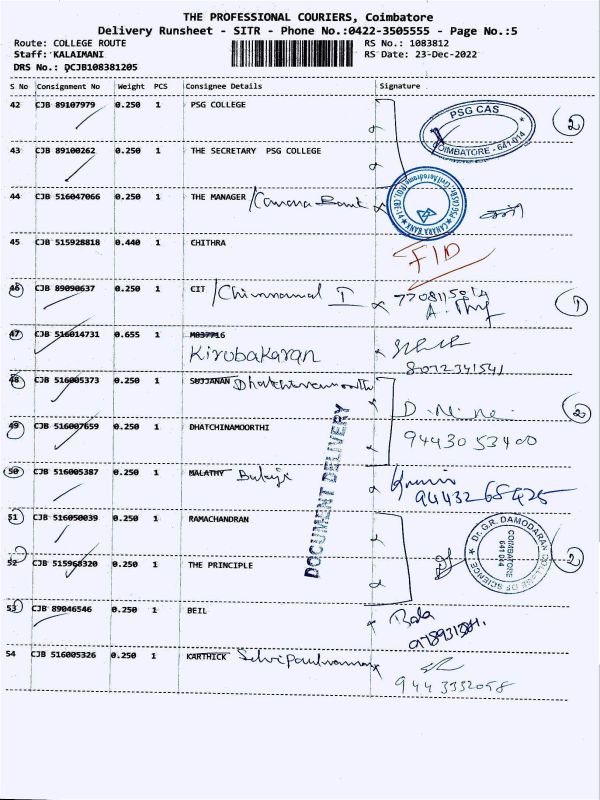 THE PROFESSIONAL COURIERS, Coimbatore
Delivery Runsheet - SITR - Phone No.:0422-3505555 - Page No.:5
Route: COLLEGE ROUTE RS No.: 1083812
Staff: KALAIMANI RS Date: 23-Dec-2022
DRS No.: DCJB108381205
S No Consignment No Weight PCS Consignee Details Signature
42 CJB 89107979 0.250 1 PSG COLLEGE
PSG CAS
COIMBATORE - 641 014
2
43 CJB 89100262 0.250 1 THE SECRETARY PSG COLLEGE
44 CJB 516047066 0.250 1 THE MANAGER / Canara Bank
CANARA BANK
45 CJB 515928818 0.440 1 CHITHRA
F/D
46 CJB 89090637 0.250 1 CIT /Chinnamal I
1
47 CJB 516014731 0.655 1 M037716
Kirubakaran
48 CJB 516005373 0.250 1 SUJJANAN
2
49 CJB 516007659 0.250 1 DHATCHINAMOORTHI
9443053400
DOCUMENT DELIVERY
50 CJB 516005387 0.250 1 MALATHY Balaji
51 CJB 516050039 0.250 1 RAMACHANDRAN
Dr. G.R. DAMODARAN COLLEGE OF SCIENCE
COIMBATORE
641 014
2
52 CJB 515968320 0.250 1 THE PRINCIPLE
53 CJB 89046546 0.250 1 BEIL
Bala
54 CJB 516005326 0.250 1 KARTHICK
9443332058